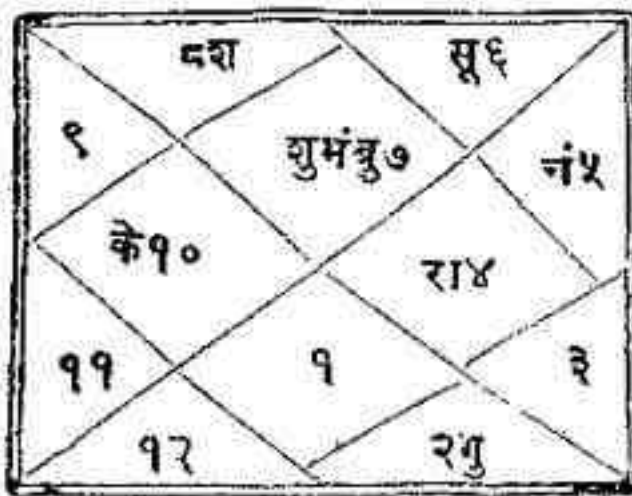 ८श
सू६
९
शुमंबु७
चं५
के१०
रा४
११
१
३
१२
२गु